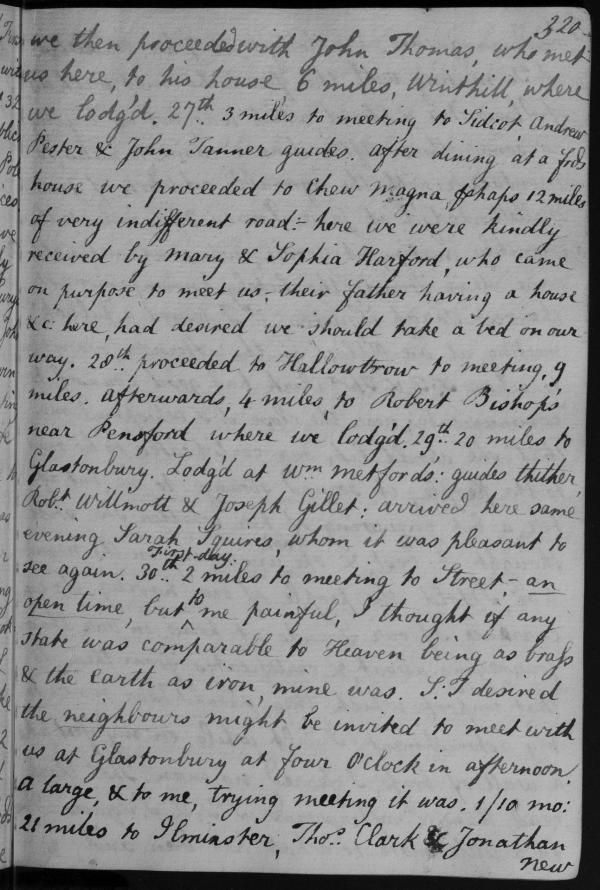 320
we then proceeded with John Thomas, who met
us here, to his house 6 miles, Winthill, where
we lodg'd. 27th. 3 miles to meeting to Sidcot, Andrew
Pester & John Tanner guides. after dining at a frds
house we proceeded to Chew Magna, phaps 12 miles
of very indifferent road:- here we were kindly
received by Mary & Sophia Harford, who came
on purpose to meet us; their father having a house
&c: here, had desired we should take a bed on our
way. 28th. proceeded to Hallowtrow to meeting, 9
miles. afterwards, 4 miles, to Robert Bishop's
near Pensford where we lodg'd. 29th. 20 miles to
Glastonbury. Lodg'd at Wm Metfords: guides thither,
Robt. Willmott & Joseph Gillet: arrived here same
evening Sarah Squires, whom it was pleasant to
First-day:
see again. 30th. 2 miles to meeting to Street,- an
open time, but to me painful, I thought if any
state was comparable to Heaven being as brass
& the earth as iron, mine was. S: T desired
the neighbours might be invited to meet with
us at Glastonbury at four O'Clock in afternoon.
A large, & to me, trying meeting it was. 1/10 mo:
21 miles to Ilminster, Thos. Clark & Jonathan
new